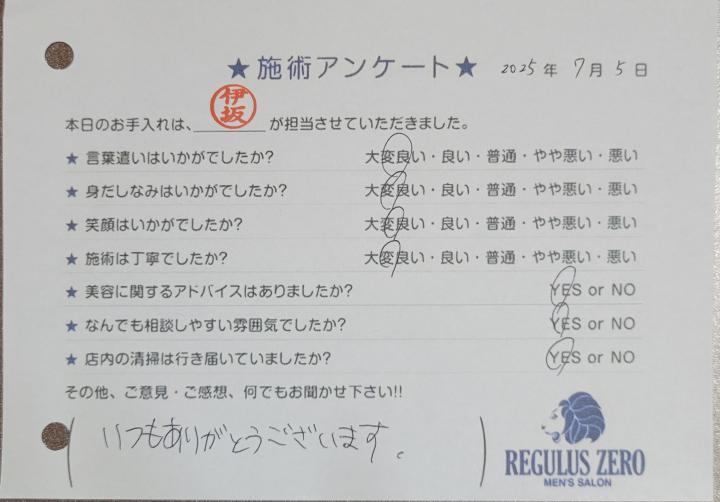 ★施術アンケート★ 2025年 7月 5日
本日のお手入れは、伊坂が担当させていただきました。
★ 言葉遣いはいかがでしたか? 大変良い・良い・普通・やや悪い・悪い
★ 身だしなみはいかがでしたか? 大変良い・良い・普通・やや悪い・悪い
★ 笑顔はいかがでしたか? 大変良い・良い・普通・やや悪い・悪い
★ 施術は丁寧でしたか? 大変良い・良い・普通・やや悪い・悪い
★ 美容に関するアドバイスはありましたか? YES or NO
★ なんでも相談しやすい雰囲気でしたか? YES or NO
★ 店内の清掃は行き届いていましたか? YES or NO
その他、ご意見・ご感想、何でもお聞かせ下さい!!
(いつもありがとうございます。)
REGULUS ZERO
MEN'S SALON